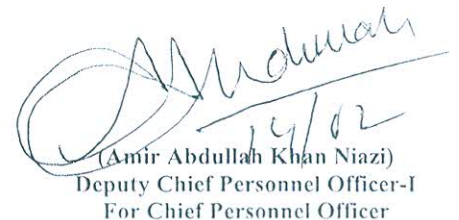 14/02
(Amir Abdullah Khan Niazi)
Deputy Chief Personnel Officer-I
For Chief Personnel Officer